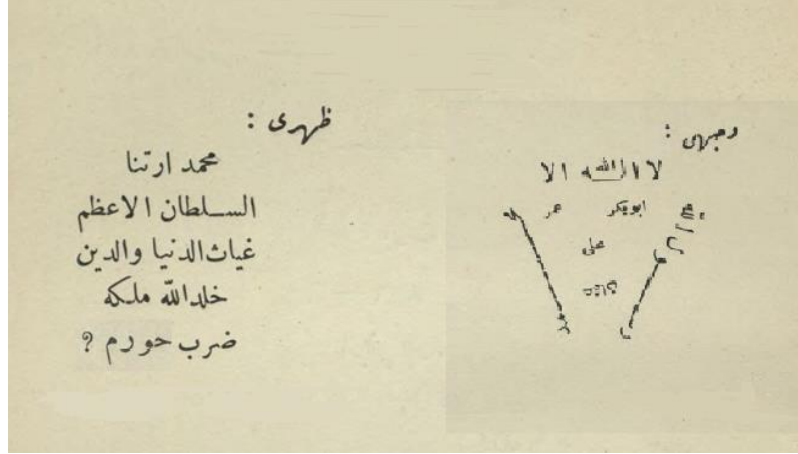 وجهى :
لا اله الا الله
ابوبكر عمر
على
ظهرى :
محمد ارتنا
السلطان الاعظم
غياث الدنيا والدين
خلد الله ملكه
ضرب حورم ?